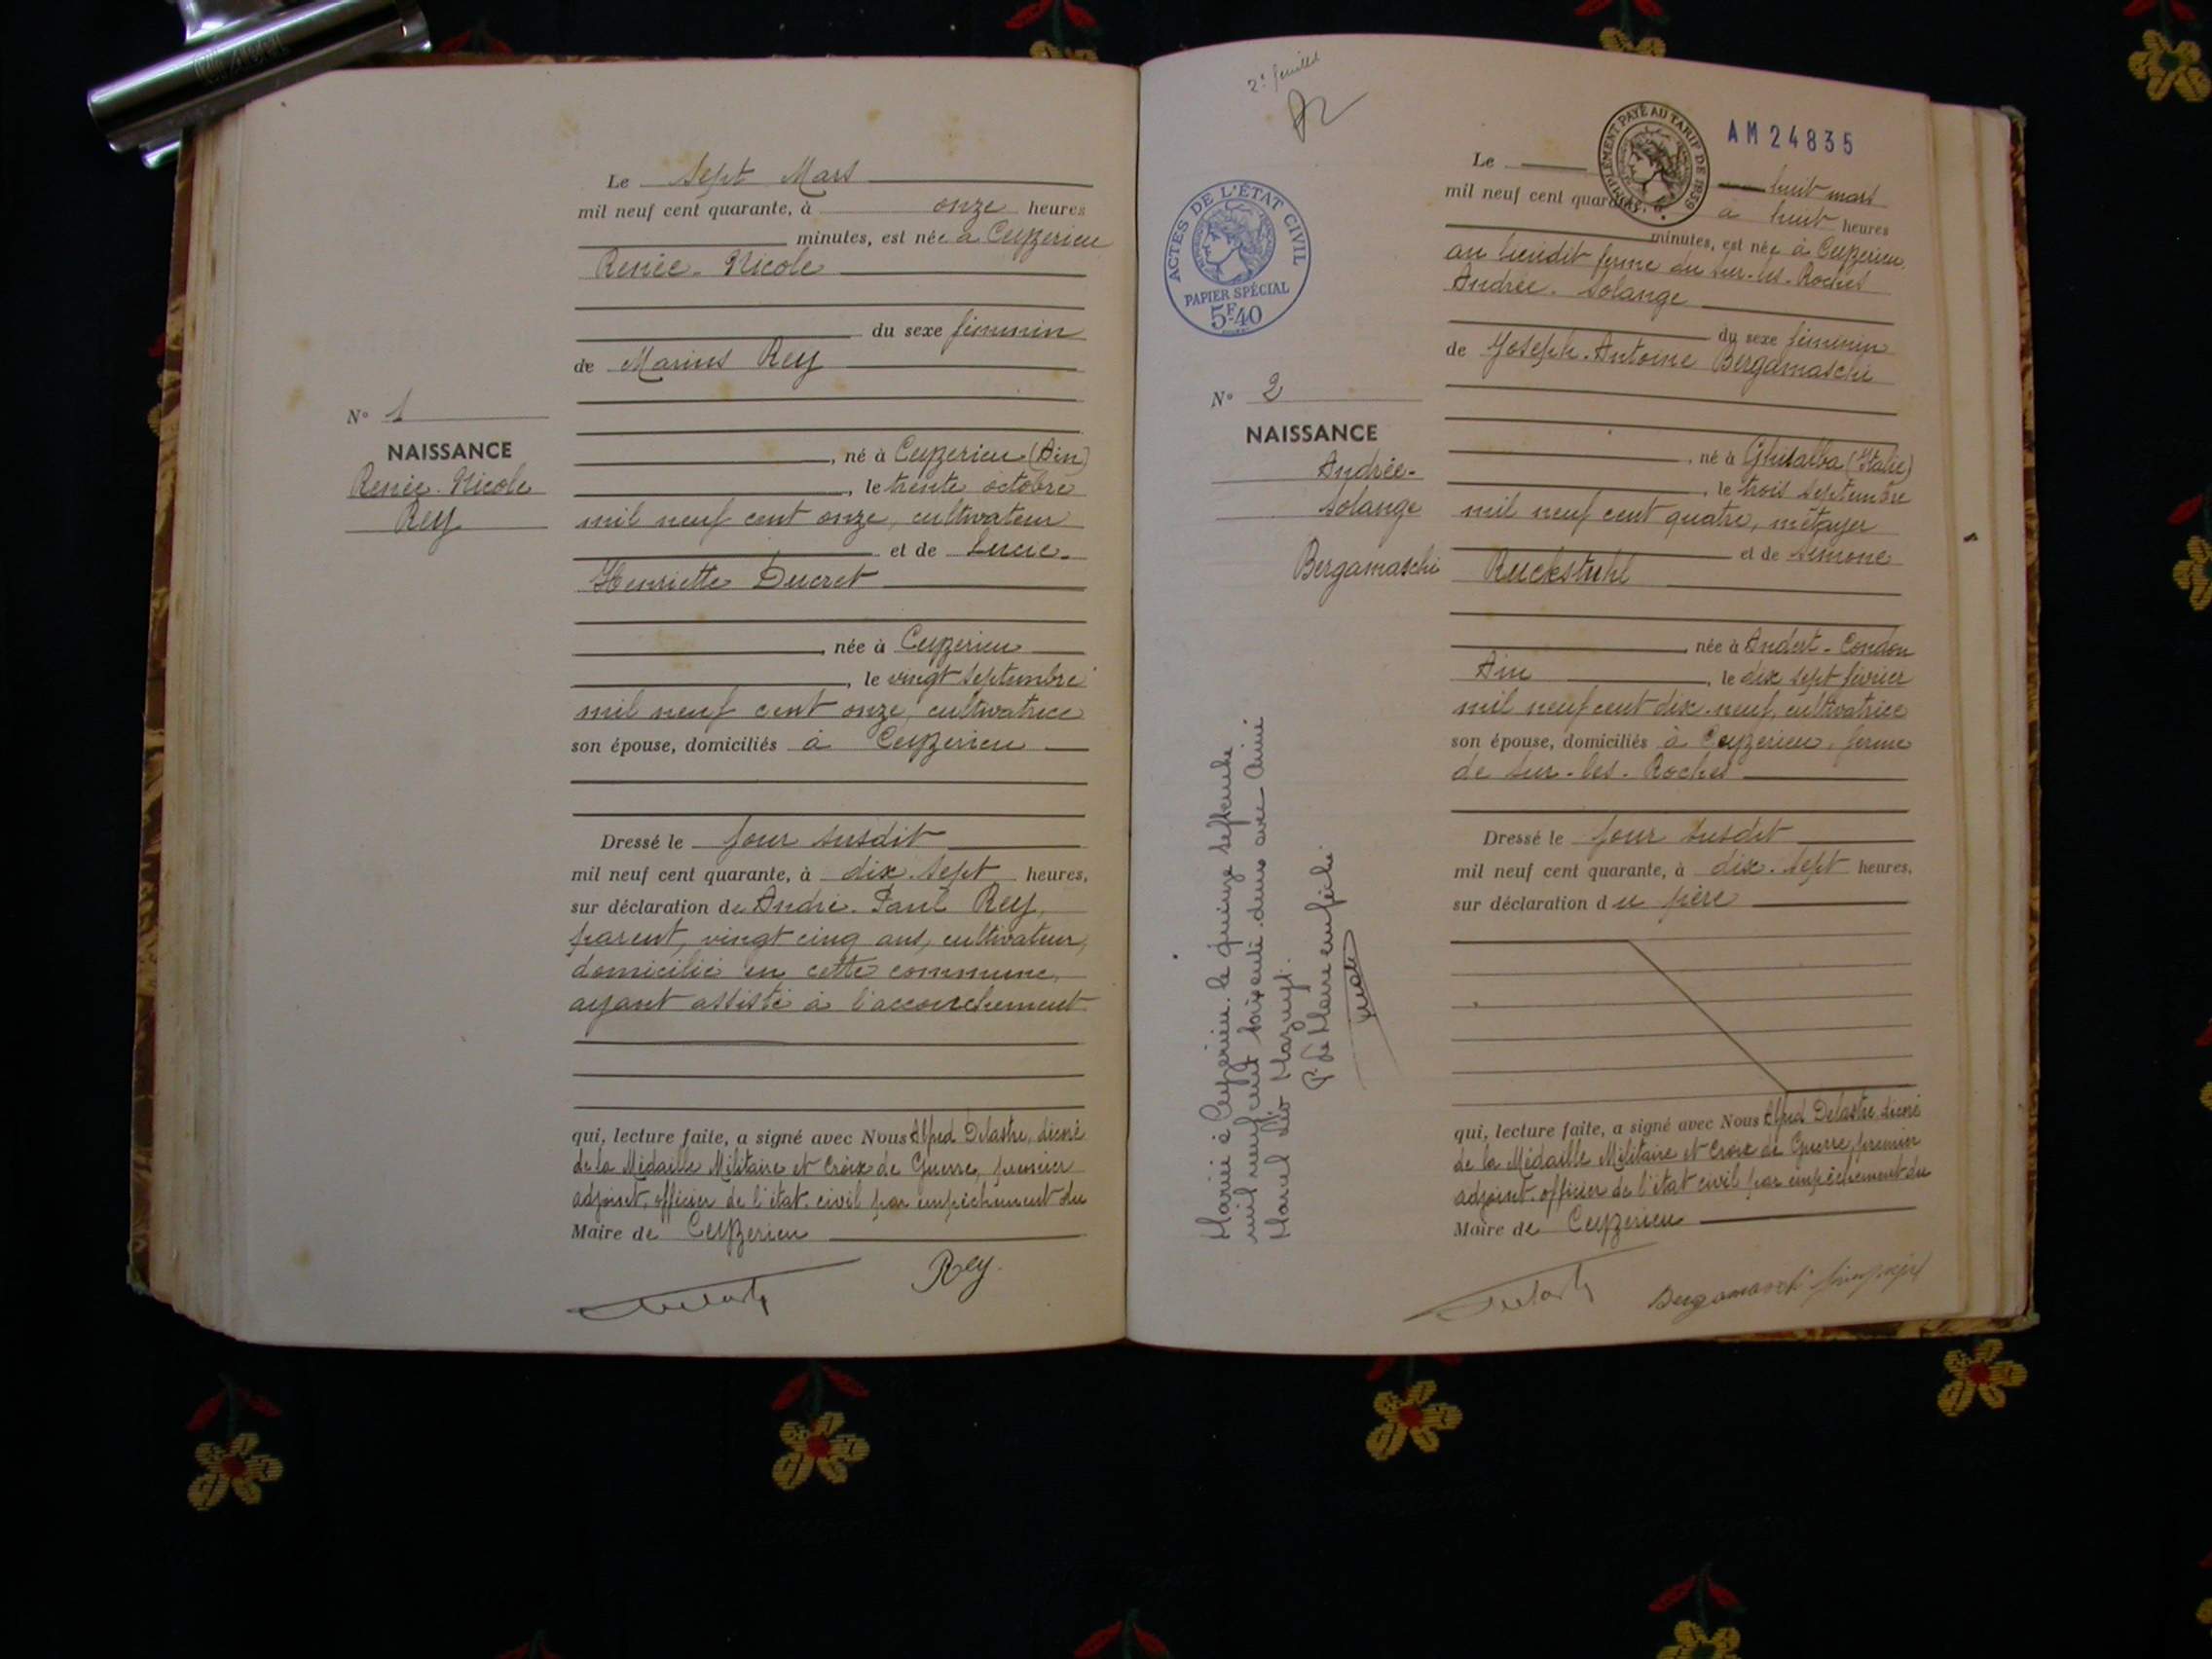 Le sept Mars
mil neuf cent quarante, à onze heures
minutes, est née à Ceyzerieu
Renée-Nicole
du sexe féminin
de Marius Rey
N° 1
NAISSANCE
Renée-Nicole
Rey
, né à Ceyzerieu (Ain)
, le trente octobre
mil neuf cent onze, cultivateur
et de Lucie-
Henriette Ducret
, née à Ceyzerieu
, le vingt septembre
mil neuf cent onze, cultivatrice
son épouse, domiciliés à Ceyzerieu
Dressé le jour susdit
mil neuf cent quarante, à dix-sept heures,
sur déclaration de André-Paul Rey,
parent, vingt cinq ans, cultivateur,
domicilié en cette commune,
ayant assisté à l'accouchement
qui, lecture faite, a signé avec Nous Alfred Delastre, décoré
de la Médaille Militaire et Croix de Guerre, premier
adjoint, officier de l'état-civil par empêchement du
Maire de Ceyzerieu
Rey
2e feuillet
ACTES DE L'ÉTAT CIVIL
PAPIER SPÉCIAL
5F.40
N° 2
NAISSANCE
Andrée-
Solange
Bergamaschi
Mariée à Ceyzerieu le quinze septembre
mil neuf cent soixante-deux avec Aimé
Marcel Léo
P. le Maire empêché
COMPLÉMENT PAYÉ AU TARIF DE 1939
AM 24835
Le huit mars
mil neuf cent quarante, à huit heures
minutes, est née à Ceyzerieu
au lieudit ferme du sur-les-Roches
Andrée-Solange
du sexe féminin
de Joseph-Antoine Bergamaschi
, né à Ghisalba (Italie)
, le trois septembre
mil neuf cent quatre, métayer
et de Simone
Ruckstuhl
, née à Andert-Condon
Ain , le dix sept février
mil neuf cent dix-neuf, cultivatrice
son épouse, domiciliés à Ceyzerieu, ferme
de sur-les-Roches
Dressé le jour susdit
mil neuf cent quarante, à dix-sept heures,
sur déclaration du père
qui, lecture faite, a signé avec Nous Alfred Delastre, décoré
de la Médaille Militaire et Croix de Guerre, premier
adjoint, officier de l'état civil par empêchement du
Maire de Ceyzerieu
Bergamaschi